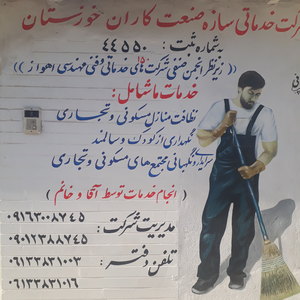 شرکت خدماتی سازه صنعت کاران خوزستان
به شماره ثبت: ۴۴۵۵۰
(( زیر نظر انجمن صنفی شرکت های خدماتی و فنی مهندسی اهواز ))
خدمات ما شامل:
نظافت منازل مسکونی و تجاری
نگهداری از کودک و سالمند
سرایداری و نگهبانی مجتمع های مسکونی و تجاری
( انجام خدمات توسط آقا و خانم )
مدیریت شرکت: ۰۹۱۶۳۰۰۸۷۴۵
۰۹۰۱۲۳۸۸۷۴۵
تلفن دفتر: ۰۶۱۳۳۸۳۱۰۰۳
۰۶۱۳۳۸۳۱۰۱۶